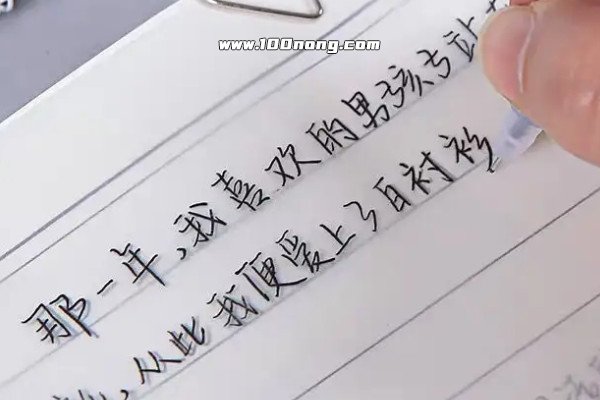 www.100nong.com
那一年,我喜欢的男孩
,从此我便爱上了白衬衫